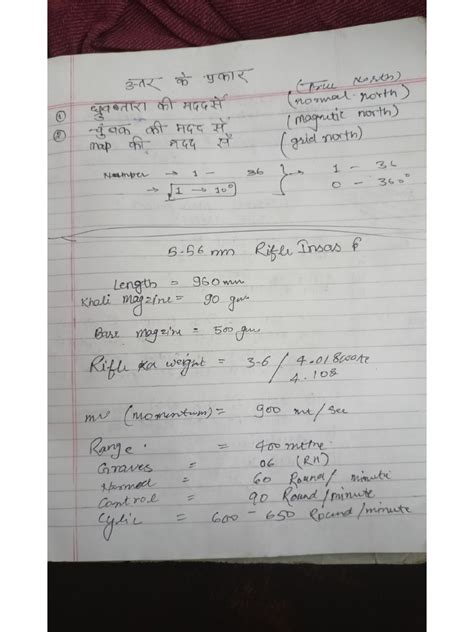 उत्तर के प्रकार
(True North)
① ध्रुवतारा की मदद से (normal north)
② चुंबक की मदद से (magnetic north)
map की मदद से (grid north)
Number → 1 - 36 } → 1 - 36
→ 1 → 10° 0 - 360°
5.56 mm Rifle Insas
Length = 960 mm
Khali magzine = 90 gm
Base magzine = 500 gm
Rifle ka weight = 3.6 / 4.018
4.108
mv (momentum) = 900 mt/sec
Range = 400 mtre
Graves = 06 (RH)
Normal = 60 Round/minute
Control = 90 Round/minute
Cyclic = 600 - 650 Round/minute